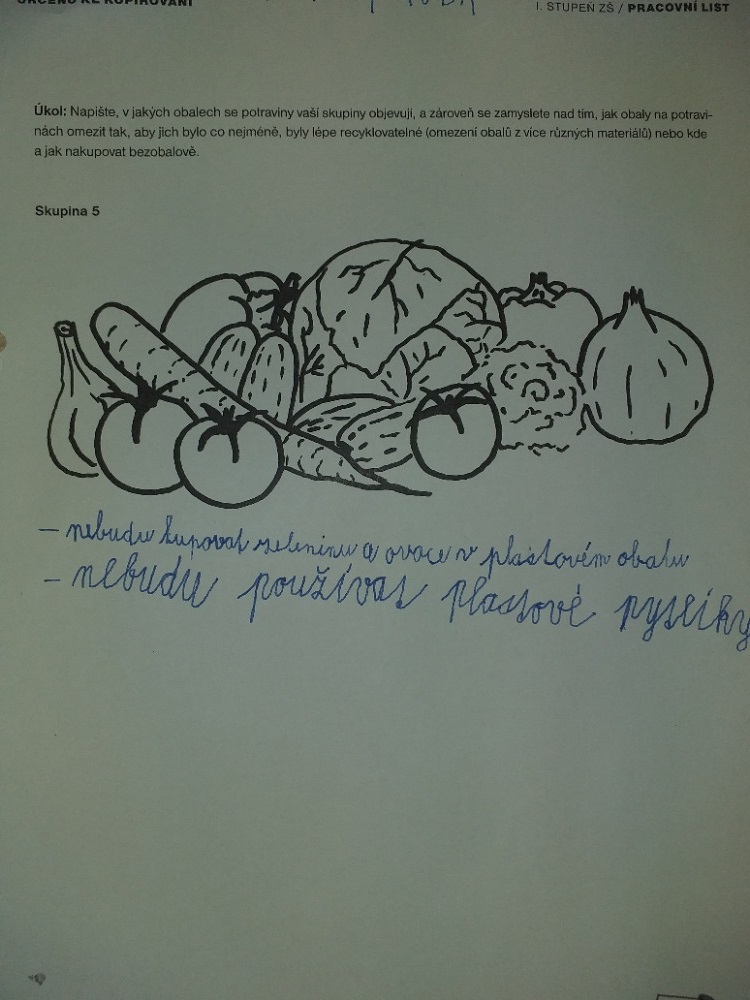 URČENO KE KOPÍROVÁNÍ
I. STUPEŇ ZŠ / PRACOVNÍ LIST
Úkol: Napište, v jakých obalech se potraviny vaší skupiny objevují, a zároveň se zamyslete nad tím, jak obaly na potravi-
nách omezit tak, aby jich bylo co nejméně, byly lépe recyklovatelné (omezení obalů z více různých materiálů) nebo kde
a jak nakupovat bezobalově.
Skupina 5
– nebudu kupovat zeleninu a ovoce v plastovém obalu
– nebudu používat plastové pytlíky